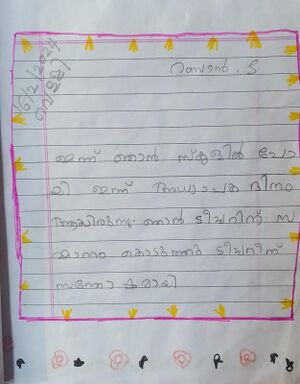 16/2/2024
വെള്ളി
റമ്പാൻ. S
ഇന്ന് ഞാൻ സ്കൂളിൽ പോ
യി ഇന്ന് അധ്യാപക ദിനം
ആയിരുന്നു. ഞാൻ ടീച്ചറിന് സ
മ്മാനം കൊടുത്തു ടീച്ചറിന്
സന്തോഷമായി